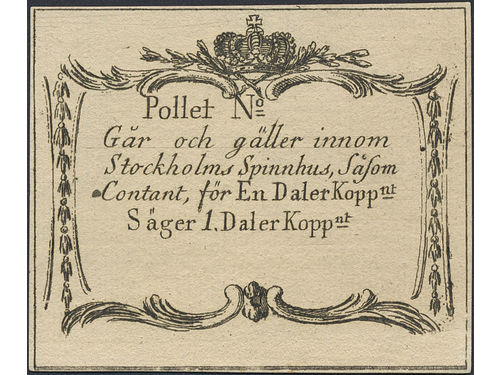 Pollet No
Går och gäller innom
Stockholms Spinnhus, Såsom
Contant, för En Daler Koppnt
Säger 1. Daler Koppnt